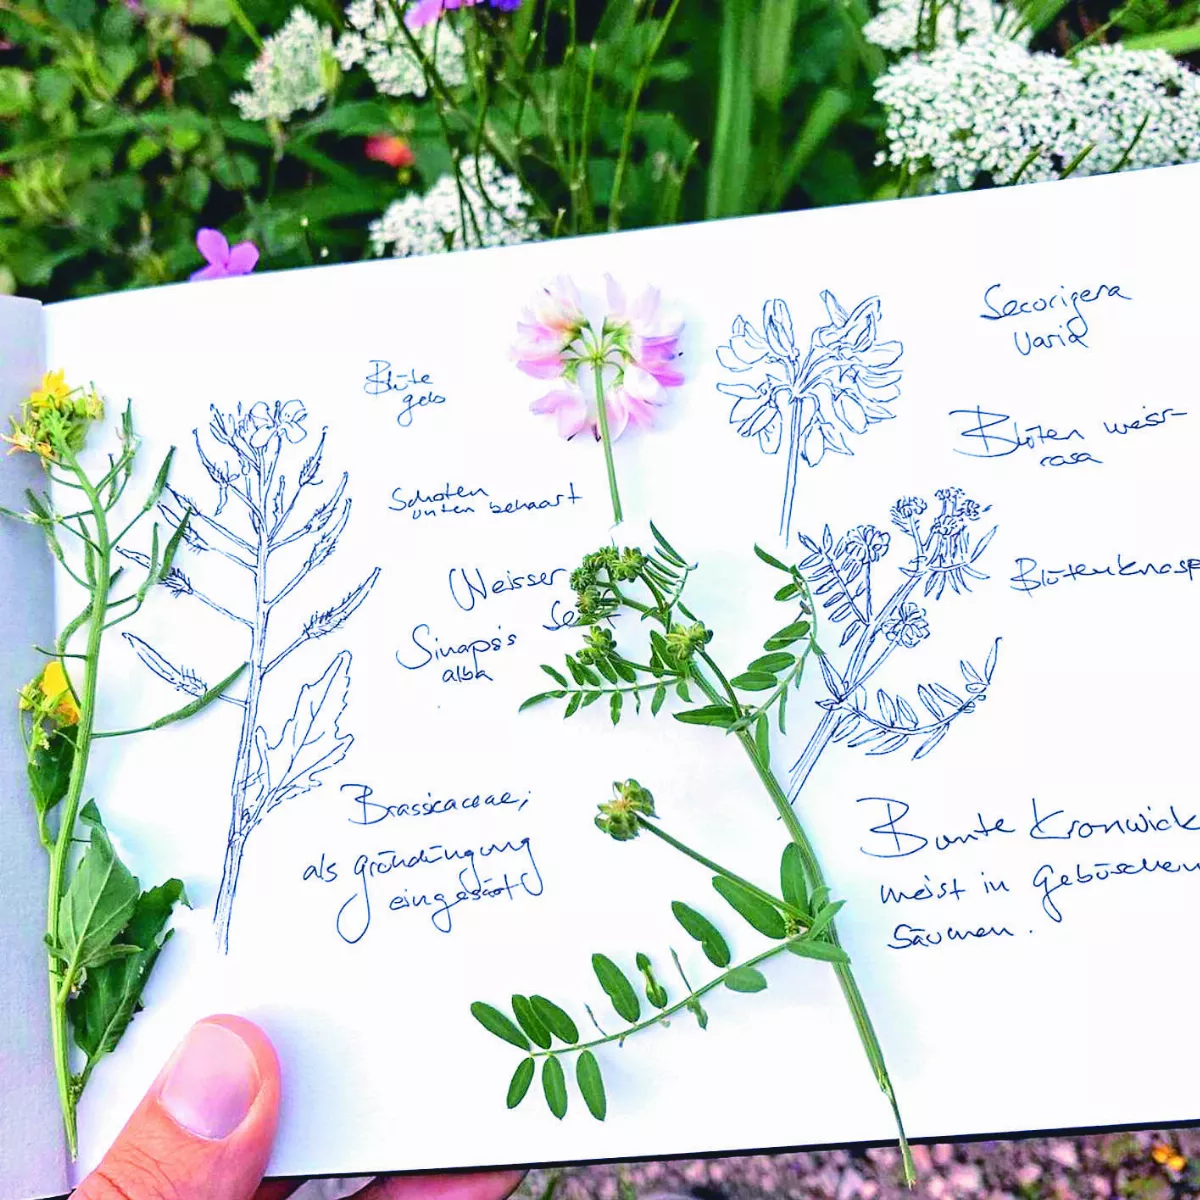 Blüte
gelb
Schoten
unten behaart
Weisser
Se
Sinapsis
alba
Brassicaceae;
als gründüngung
eingesät
Securigera
varia
Blüten weiss-
rosa
Blütenknosp
Bunte Kronwick
meist in Gebüschen
Säumen.